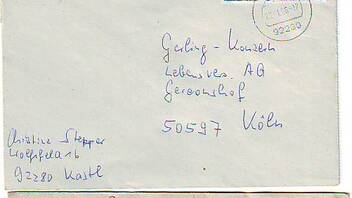 92280
Gerling - Konzern
Lebensvers. AG
Gereonshof
50597 Köln
Christine Stepper
92280 Kastl